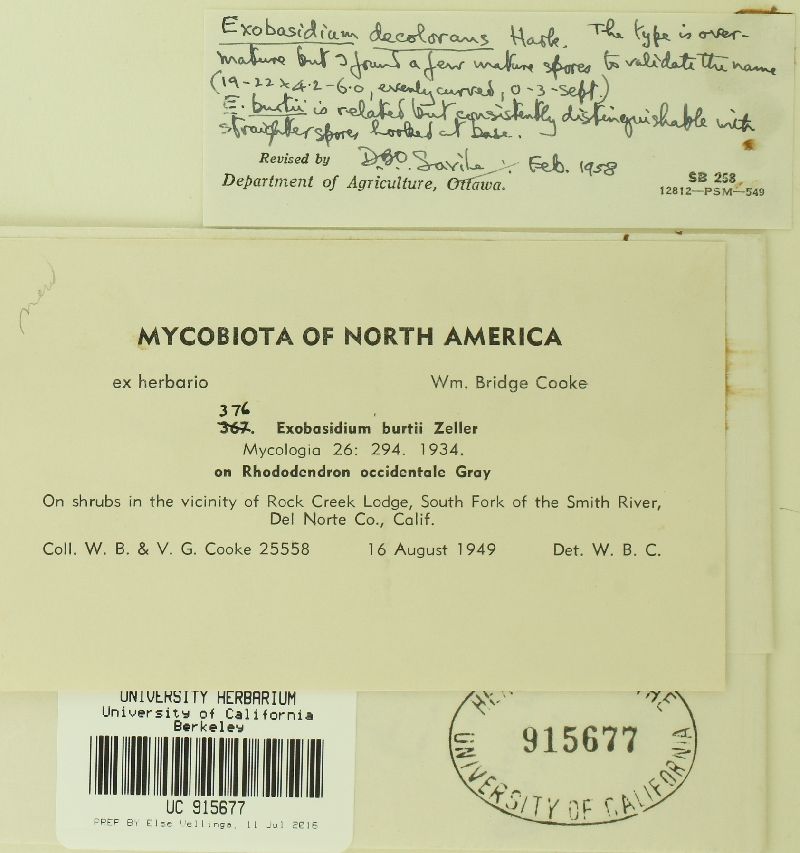 Exobasidium decolorans Hark. The type is over-
mature but I found a few mature spores to validate the name
(19-22 x 4.2-6.0, evenly curved, 0-3-sept.)
E. burtii is related but consistently distinguishable with
straighter spores hooked at base.
Revised by D.B.O. Savile. Feb. 1958
Department of Agriculture, Ottawa.
SB 258
12812—PSM—549
MYCOBIOTA OF NORTH AMERICA
ex herbario Wm. Bridge Cooke
376
367. Exobasidium burtii Zeller
Mycologia 26: 294. 1934.
on Rhododendron occidentale Gray
On shrubs in the vicinity of Rock Creek Lodge, South Fork of the Smith River,
Del Norte Co., Calif.
Coll. W. B. & V. G. Cooke 25558 16 August 1949 Det. W. B. C.
UNIVERSITY HERBARIUM
University of California
Berkeley
UC 915677
PREP BY Else Vellinga, 11 Jul 2016
915677
UNIVERSITY OF CALIFORNIA